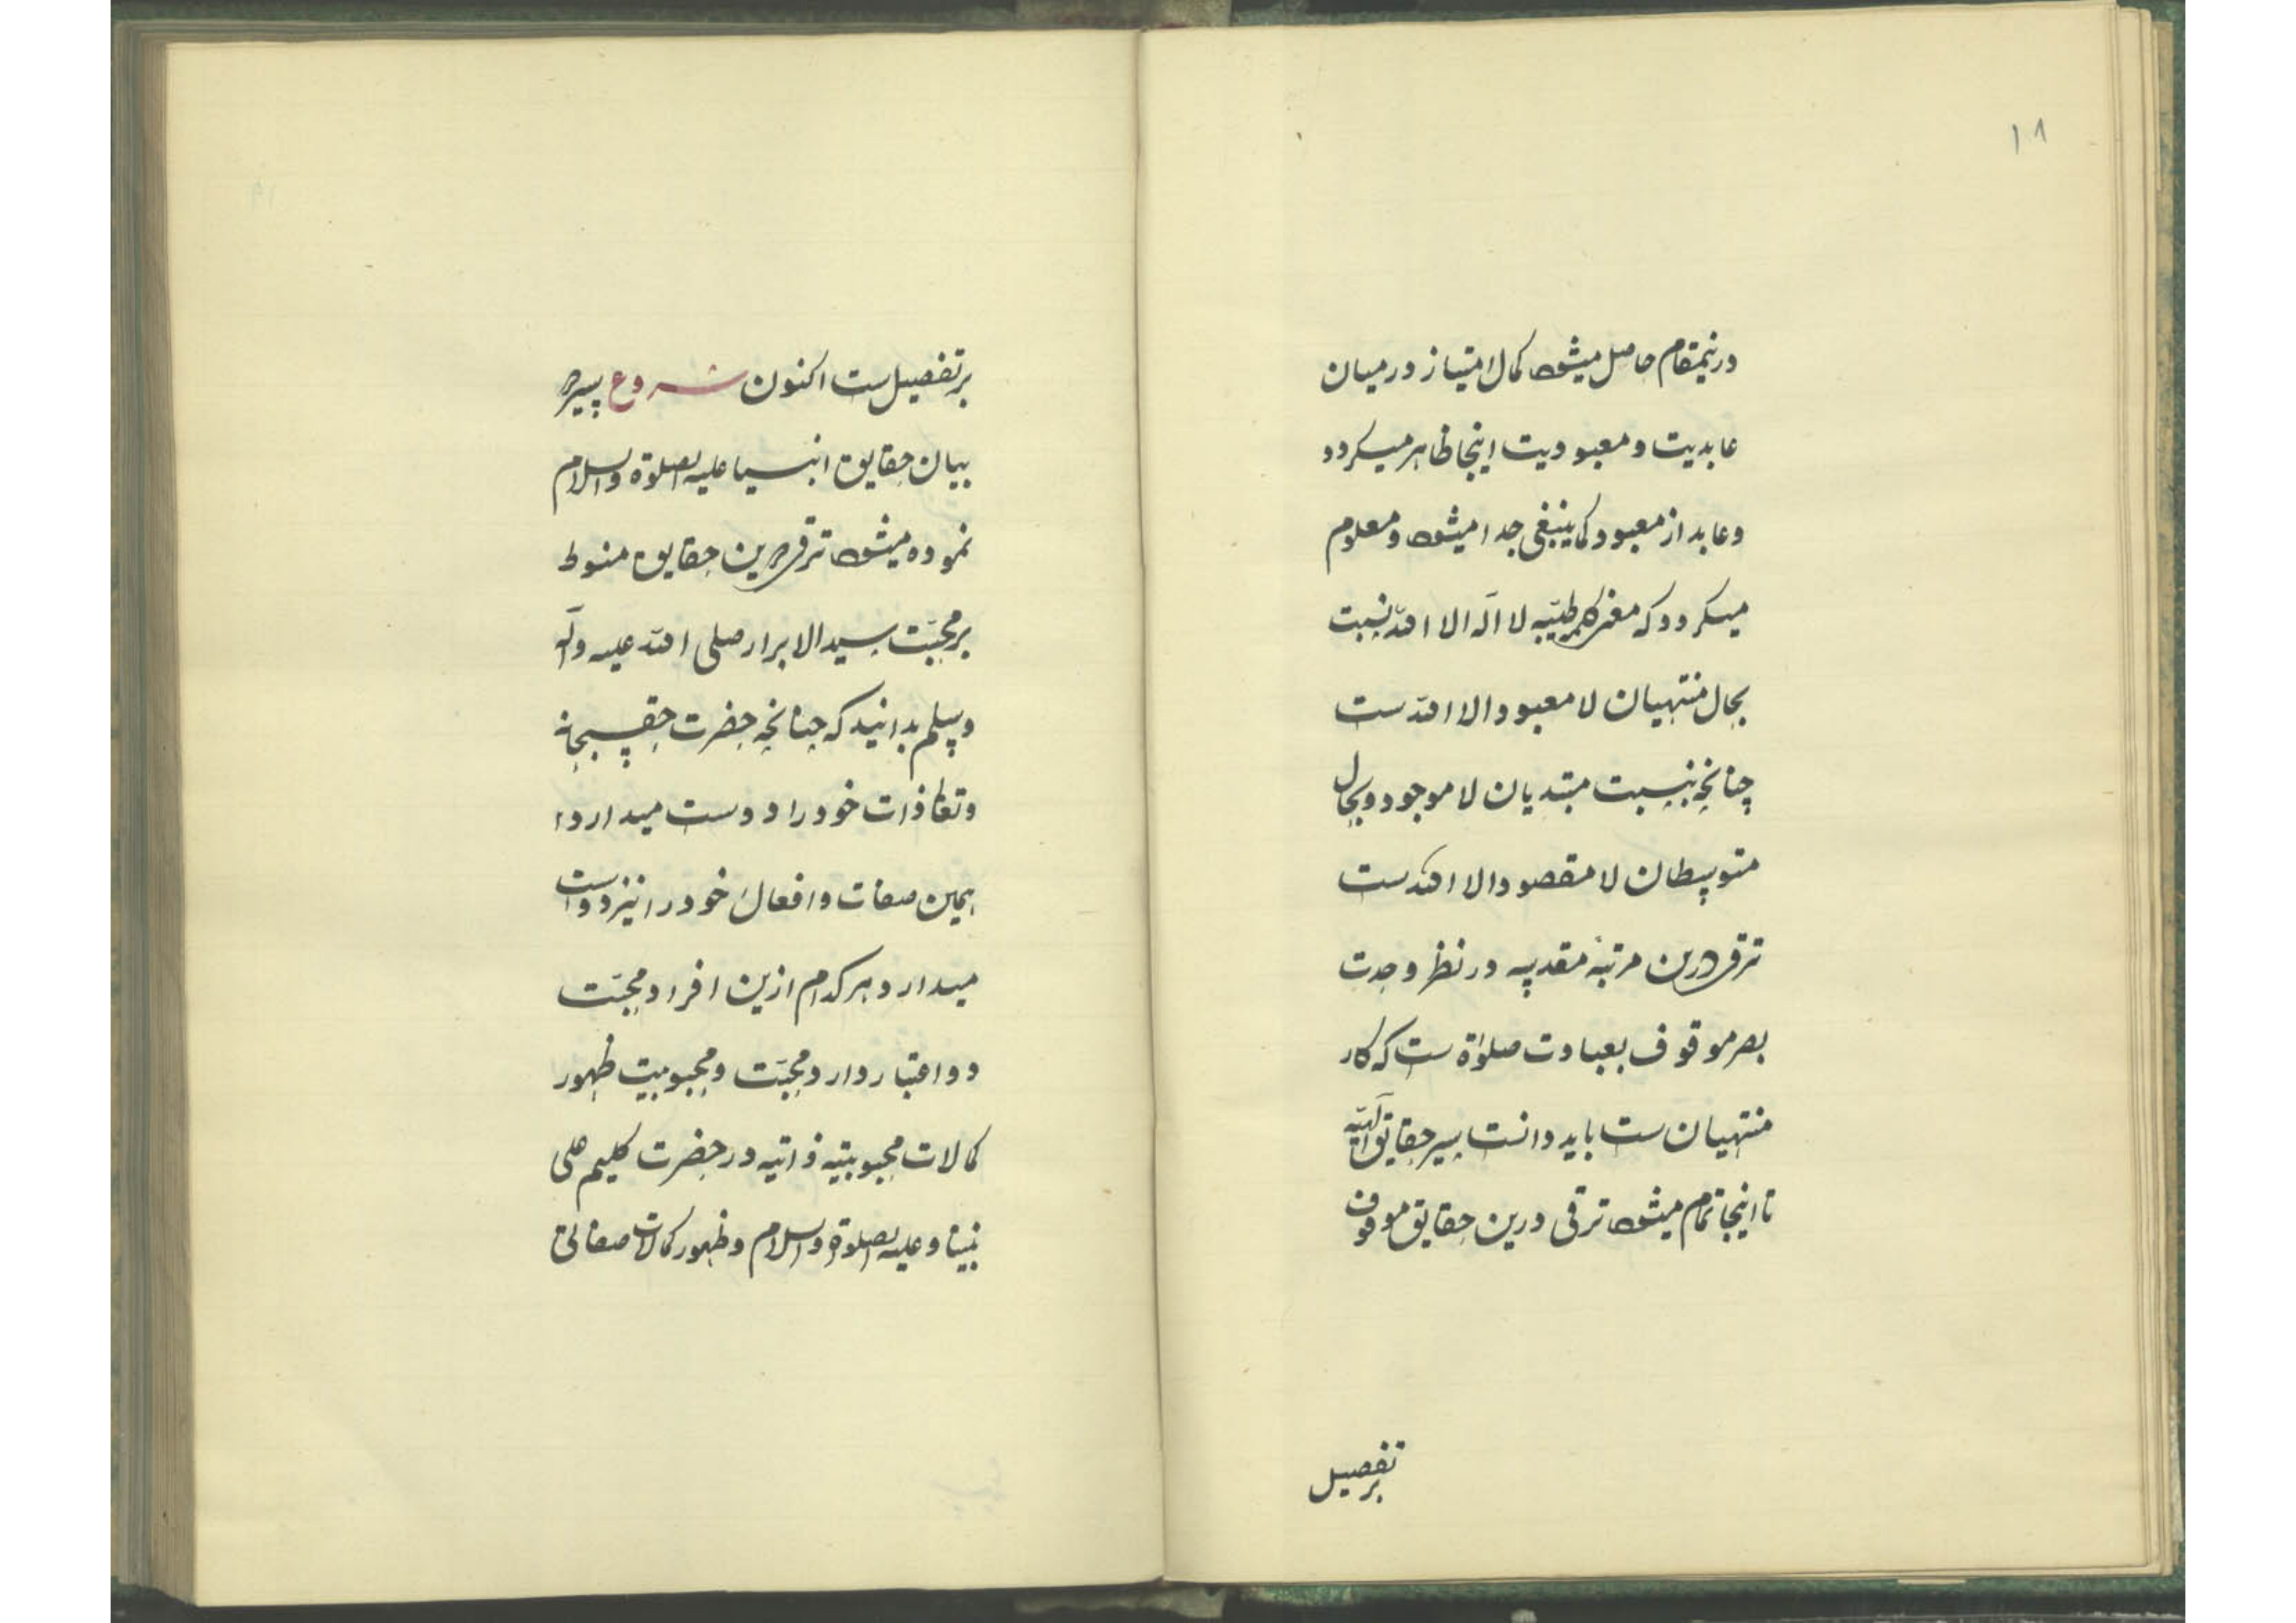 ۱۸
درینمقام حاصل میشود کمال امتیاز درمیان
عابدیت و معبودیت اینجا ظاهر میگردد
و عابد از معبود کما ینبغی جدا میشود و معلوم
میگردد که معنی کلمه طیّبه لا اله الا الله نسبت
بحال منتهیان لا معبود الا الله ست
چنانچه بنسبت مبتدیان لا موجود و بحال
متوسطان لا مقصود الا الله ست
ترقی درین مرتبهٔ مقدسه در نظر وحدت
بصر موقوف بعبادت صلوٰة ست که کار
منتهیان ست باید دانست سیر حقایق الٓهیّه
تا اینجا تمام میشود ترقی درین حقایق موقوف
بر تفصیل
بر تفصیل ست اکنون شروع سیر در
بیان حقایق انبیا علیه الصلوة والسلام
نموده میشود ترقی درین حقایق منوط
بر محبّت سید الابرار صلی الله علیه وآله
وسلم بدانید که چنانچه حضرت حق سبحانه
وتعا ذات خود را دوست میدارد
همین صفات و افعال خود را نیز دوست
میدارد و هر کدام ازین افراد محبّت
دو اعتبار دارد محبّت و محبوبیت ظهور
کمالات محبوبیّه ذاتیه در حضرت کلیم علی
نبینا وعلیه الصلوة والسلام و ظهور کمالات صفاتی